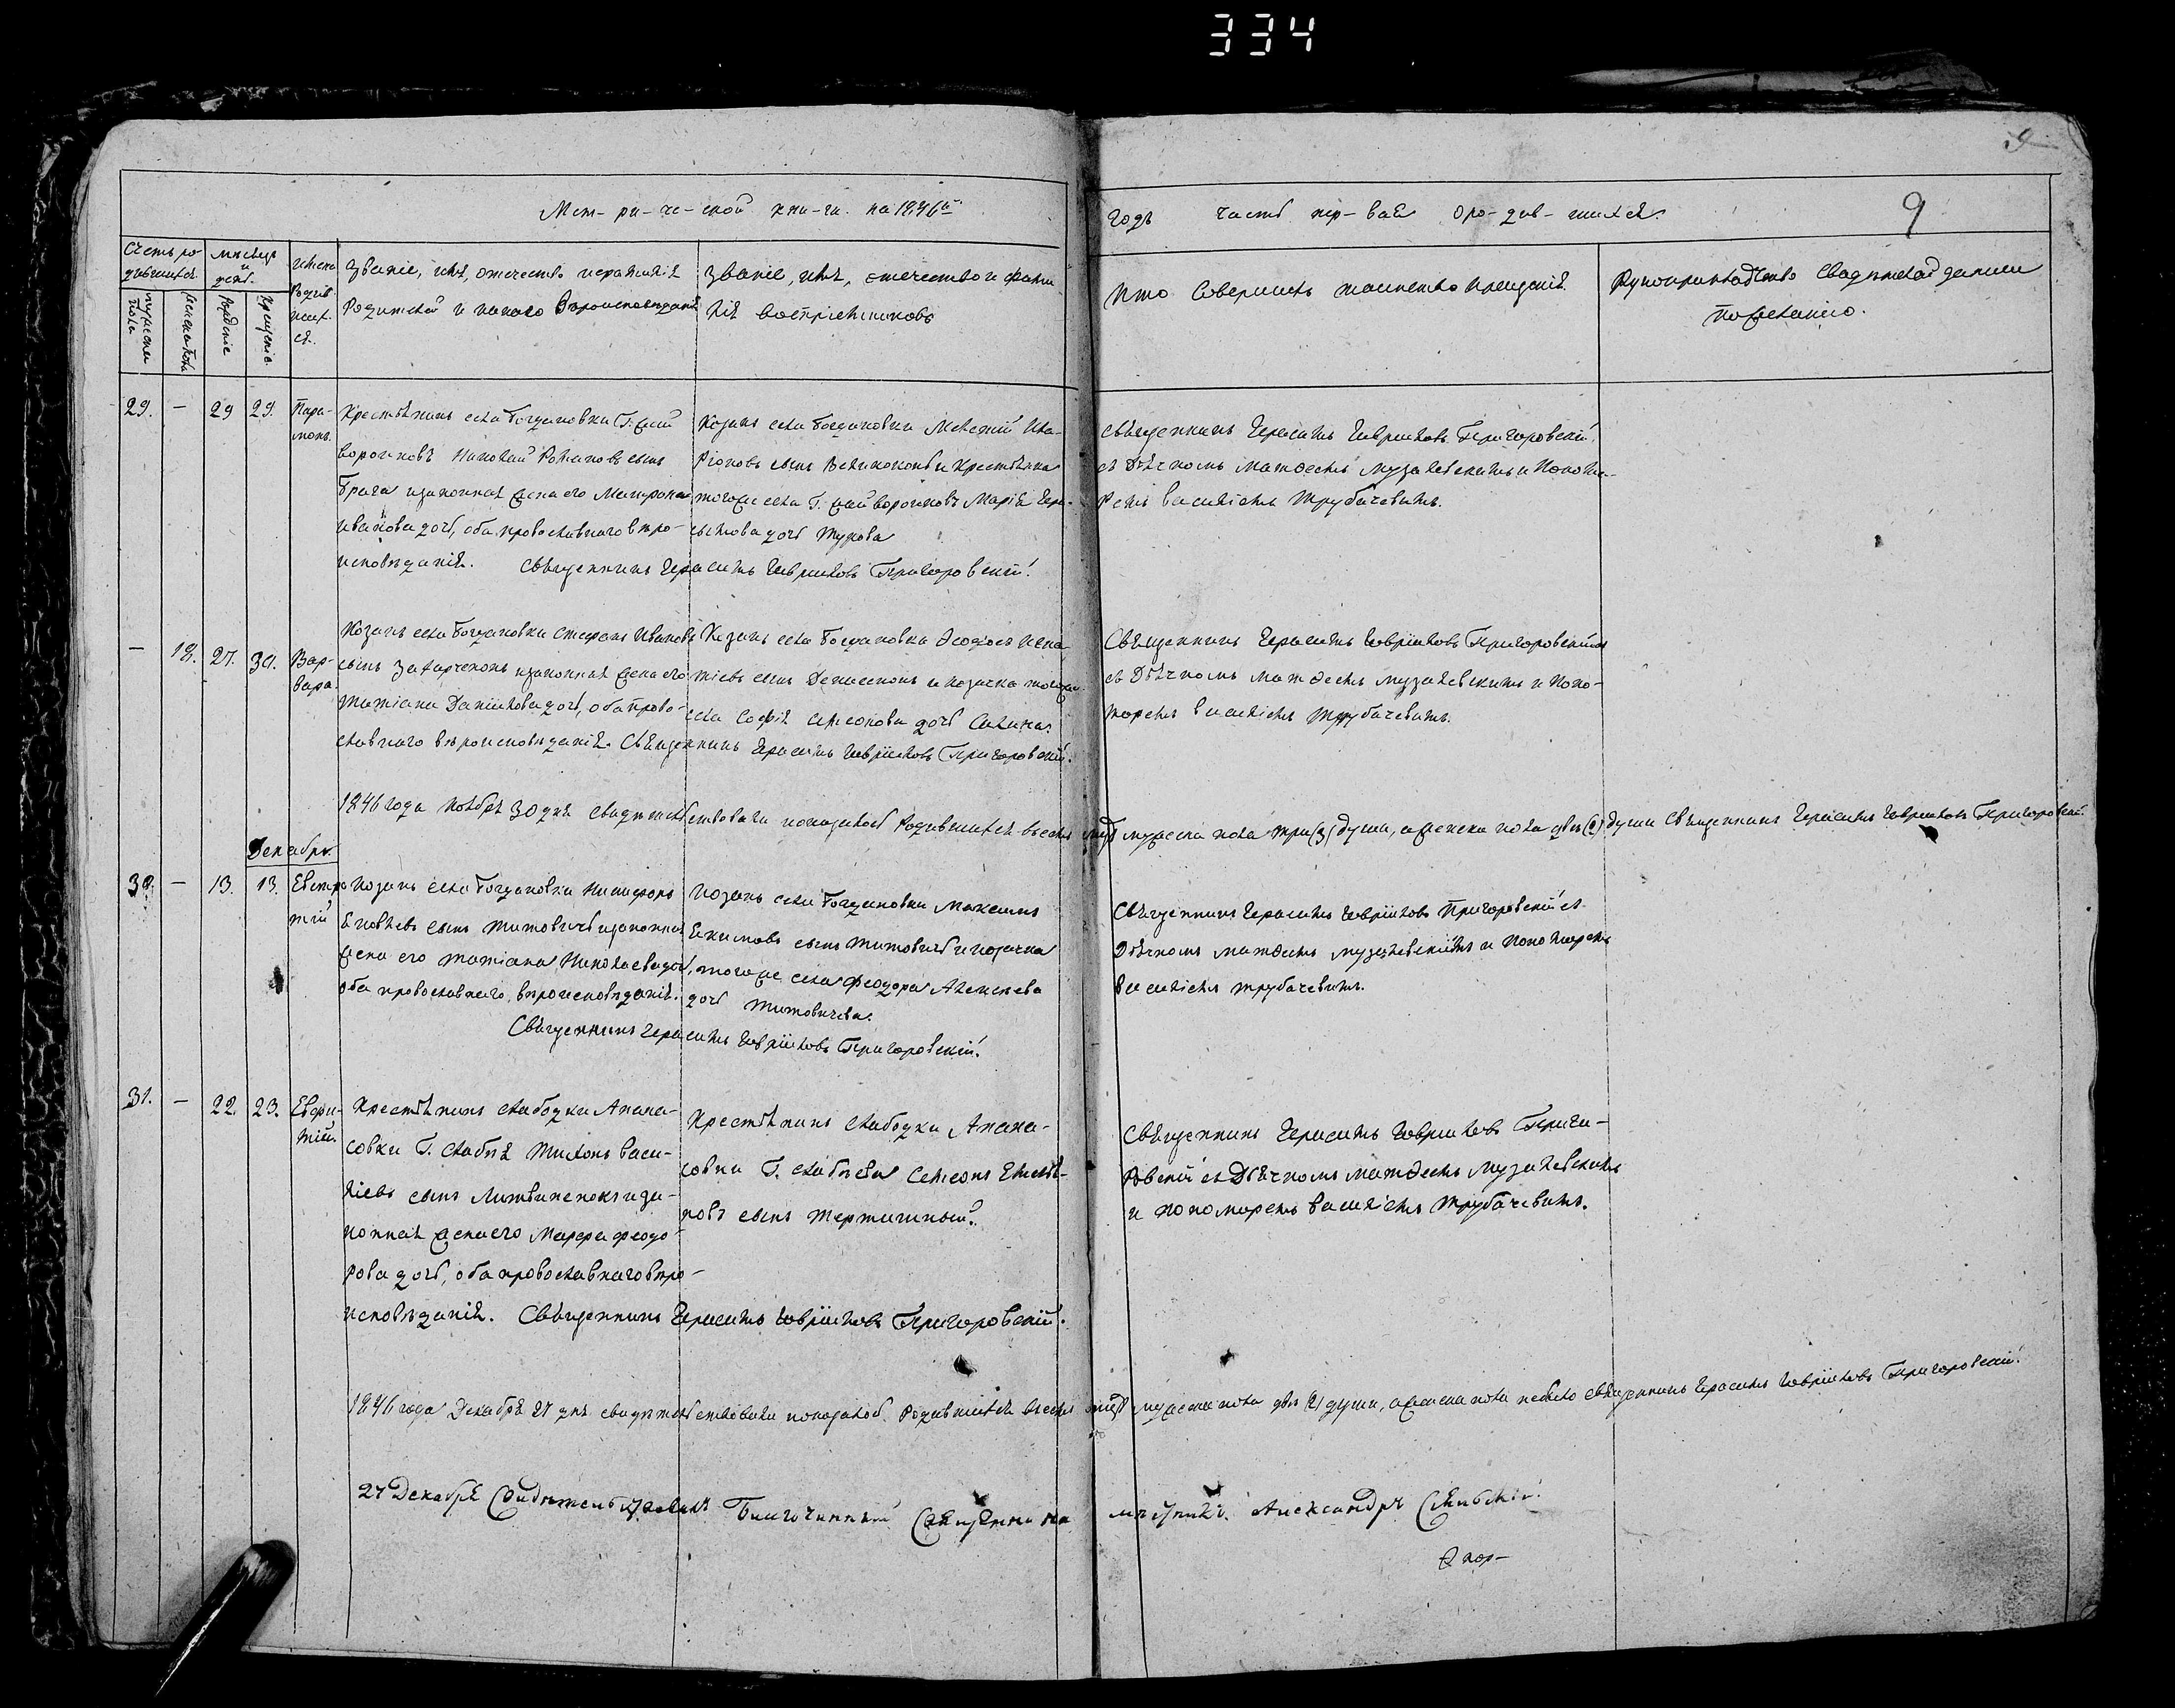 334
9
Метрической книги на 1846й
годъ часть первая о родившихся.
9
Счетъ родившихся
мужеска пола
женска пола
месяцъ и день
Рожденіе
Крещеніе
имена Родившихся
Званіе, имя, отечество и фамилія
Родителей и какого вероисповеданія
Званіе, имя, отечество и фами
лія воспріемниковъ
Кто совершилъ таинство крещенія
Рукоприкладство свидетелей записи
по желанію.
29. — 29 29.
Пара-
монъ.
Крестьянинъ села Богдановки Г.
Николай Романовъ сынъ
Брага и законная жена его Матрона
Иванова дочь, оба православнаго веро-
исповеданія. Священникъ Герасимъ Гавриловъ Пригоровскій.
Козакъ села Богдановки Алексій Ила-
ріоновъ сынъ и крестьянка
тогоже села Г. Марія Гера-
симова дочь
Священникъ Герасимъ Гавриловъ Пригоровскій
съ Дьячкомъ Матвеемъ Музалевскимъ и Понома-
ремъ Василіемъ Трубачевимъ.
— 18. 27. 30.
Вар-
вара
Козакъ села Богдановки Стефанъ Ивановъ
сынъ Захарченокъ и законная жена его
Татіана Даніилова дочь, оба право-
славнаго вероисповеданія. Священникъ Герасимъ Гавріиловъ Пригоровскій.
Козакъ села Богдановки Феодосъ Игна
тіевъ сынъ Денисенокъ и козачка тогоже
села Софія Симеонова дочь
Священникъ Герасимъ Гавріиловъ Пригоровскій
съ Дьячкомъ Матвеемъ Музалевскимъ и Поно-
маремъ Василіемъ Трубачевимъ.
1846 года Ноября 30 дня свидетельствовали показалось Родившихся въ семъ м-це мужеска пола три (3) души, а женска пола две (2) души Священникъ Герасимъ Гавріиловъ Пригоровскій.
Декабрь.
30. — 13. 13.
Евстра
тій
Козакъ села Богдановки Никифоръ
Іаковлевъ сынъ Титовичъ и законная
жена его Татіана Николаева дочь,
оба православнаго вероисповеданія.
Священникъ Герасимъ Гавріиловъ Пригоровскій.
Козакъ села Богдановки Максимъ
Екимовъ сынъ Титовичъ и козачка
тогоже села Феодора Алексеева
дочь Титовичева.
Священникъ Герасимъ Гавріиловъ Пригоровскій съ
Дьячкомъ Матвеемъ Музалевскимъ и Пономаремъ
Василіемъ Трубачевимъ.
31. — 22. 23.
Евфи-
мій.
Крестьянинъ слабодки Апана-
совки Г. Скабпя Тихонъ Васи-
ліевъ сынъ Литвиненокъ и за-
конная жена его Марфа Феодо-
рова дочь, оба православнаго веро-
исповеданія. Священникъ Герасимъ Гавріиловъ Пригоровскій.
Крестьянинъ слабодки Апана-
совки Г. Симеонъ Емелья-
новъ сынъ Тертишный.
Священникъ Герасимъ Гавриловъ Приго-
ровскій съ Дьячкомъ Матвеемъ Музалевскимъ
и пономаремъ Василіемъ Трубачевимъ.
1846 года Декабря 27 дня свидетельствовали показалось Родившихся въ семъ м-це мужеска пола две (2) души, а женска пола небыло Священникъ Герасимъ Гавріиловъ Пригоровскій.
27 Декабря Свидетельствовалъ Благочинный Священнона
местникъ Александръ